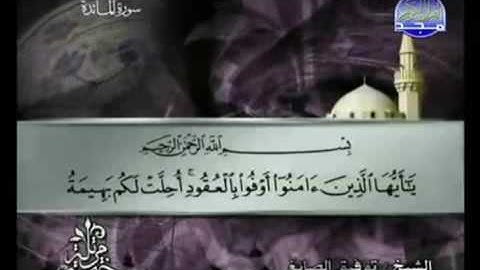 سورة المائدة
المجد
بِسْمِ اللَّهِ الرَّحْمَٰنِ الرَّحِيمِ
يَٰٓأَيُّهَا الَّذِينَ ءَامَنُوٓا۟ أَوْفُوا۟ بِالْعُقُودِ ۚ أُحِلَّتْ لَكُم بَهِيمَةُ
الشيخ: توفيق الصايغ